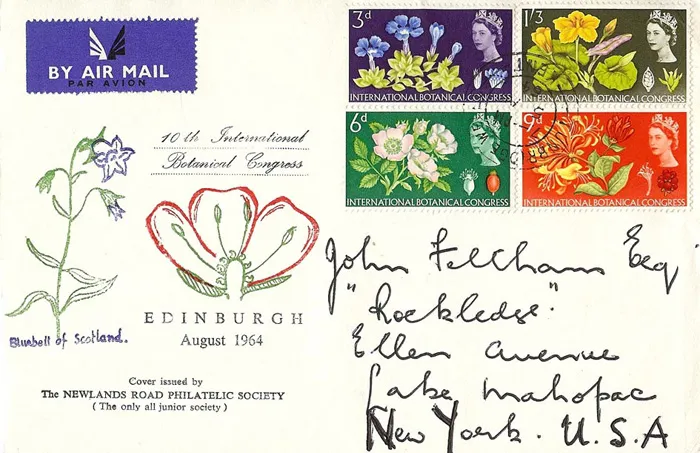 BY AIR MAIL
PAR AVION
3d
INTERNATIONAL BOTANICAL CONGRESS
1/3
INTERNATIONAL BOTANICAL CONGRESS
6d
INTERNATIONAL BOTANICAL CONGRESS
9d
INTERNATIONAL BOTANICAL CONGRESS
10th International
Botanical Congress
EDINBURGH
August 1964
Bluebell of Scotland.
Cover issued by
The NEWLANDS ROAD PHILATELIC SOCIETY
( The only all junior society )
John Feltham Esq
"Rockledge".
Ellen Avenue
Lake Mahopac
New York. U.S.A